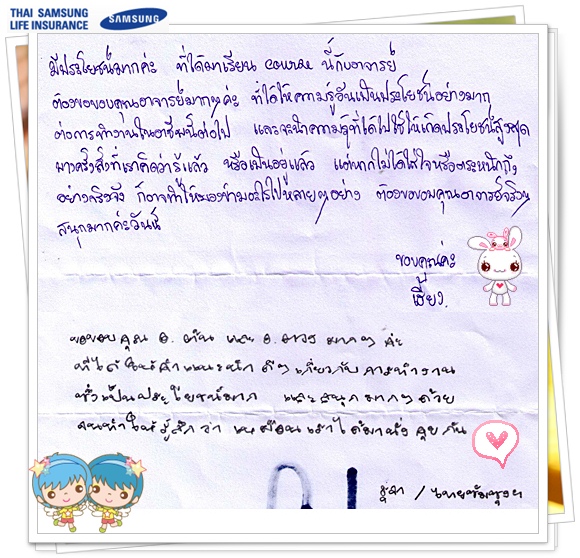 THAI SAMSUNG
LIFE INSURANCE
SAMSUNG
มีประโยชน์มากค่ะ ที่ได้มาเรียน course นี้กับอาจารย์
ต้องขอขอบคุณอาจารย์มากๆค่ะ ที่ได้ให้ความรู้อันเป็นประโยชน์อย่างมาก
ต่อการทำงานในอาชีพนี้ต่อไป และจะนำความรู้ที่ได้ไปใช้ให้เกิดประโยชน์สูงสุด
บางครั้งสิ่งที่เราคิดว่ารู้แล้ว หรือเป็นอยู่แล้ว แต่หากไม่ได้ใส่ใจหรือตระหนักถึง
อย่างจริงจัง ก็อาจทำให้มองข้ามอะไรไปหลายๆอย่าง ต้องขอขอบคุณอาจารย์จริงๆ
สนุกมากค่ะวันนี้
ขอบคุณค่ะ
ขอขอบคุณ อ. และ อ. มากๆ ค่ะ
ที่ได้ให้คำแนะนำดีๆ เกี่ยวกับการทำงาน
ซึ่งเป็นประโยชน์มาก และสนุกมากๆ ด้วย
จนทำให้รู้สึกว่า เหมือนเราได้มานั่งคุยกัน